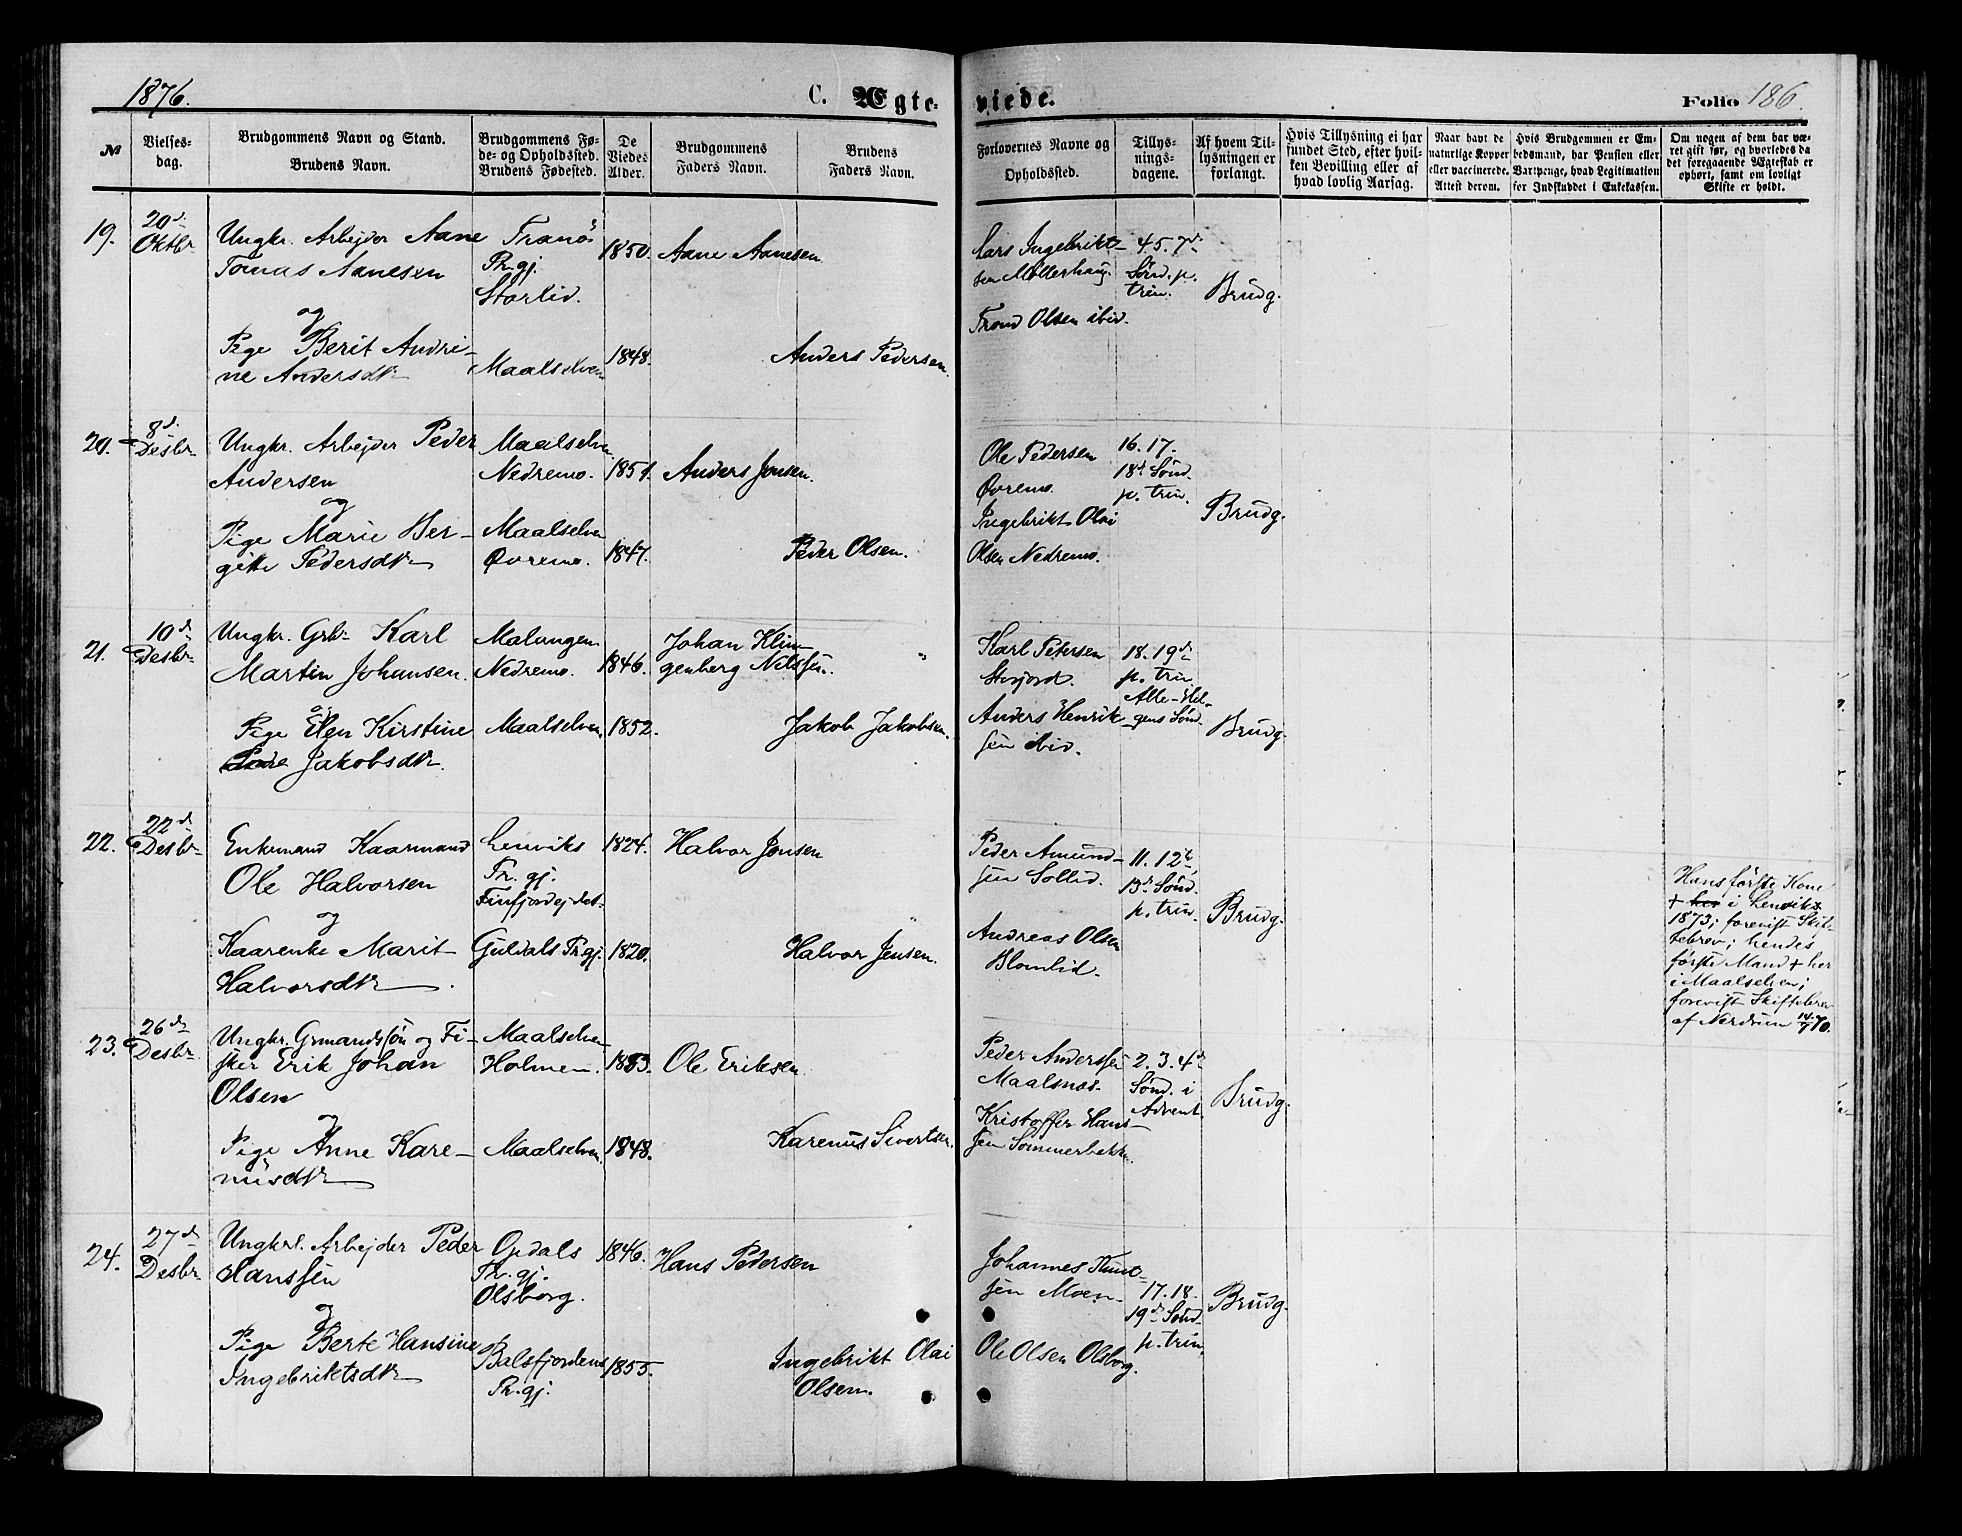 1876.
C. Ægte-
viede.
Folio 186.
№
Vielses-
dag.
Brudgommens Navn og Stand.
Brudens Navn.
Brudgommens Fø-
de- og Opholdssted.
Brudens Fødested.
De
Viedes
Alder.
Brudgommens
Faders Navn.
Brudens
Faders Navn.
Forlovernes Navne og
Opholdssted.
Tillys-
nings-
dagene.
Af hvem Til-
lysningen er
forlangt.
Hvis Tillysning ei har
fundet Sted, efter hvil-
ken Bevilling eller af
hvad lovlig Aarsag.
Naar havt de
naturlige Kopper
eller vaccinerede.
Attest derom.
Hvis Brudgommen er Em-
bedsmand, har Pension eller
Vartpenge, hvad Legitimation
for Indskuddet i Enkekassen.
Om nogen af dem har væ-
ret gift før, og hvorledes da
det foregaaende Ægteskab er
ophørt, samt om lovligt
Skifte er holdt.
19.
20d.
Oktbr
Ungkr. Arbejder Aane
Tomas Aanesen
og
Pige Berit Andri-
ne Andersdtr
Tranös
Pr.gj.
Storlid.
Maalselven
1850.
1848.
Aane Aanesen
Anders Pedersen.
Lars Ingebrikt-
sen Møllerhaug.
Trond Olsen ibid.
4.5.7d.
Sönd. p.
trin.
Brudg.
20.
8d.
Desbr.
Ungkr. Arbejder Peder
Andersen
og
Pige Marie Ber-
gitte Pedersdtr
Maalselven
Nedremo.
Maalselven
Øvremo.
1851.
1847.
Anders Jonsen.
Peder Olsen.
Ole Pedersen
Øvremo.
Ingebrikt Olai
Olsen Nedremo.
16.17.
18d Sönd.
p. trin.
Brudg.
21.
10d
Desbr
Ungkr. Grb. Karl
Martin Johansen.
og
Pige Elen Kirstine
Jakobsdtr.
Malangen
Nedremo.
Maalselven
1846.
1852.
Johan Klin-
genberg Nilssen.
Jakob Jakobsen.
Karl Petersen
Storjord.
Anders Henrik-
sen ibid.
18.19d
p. trin.
Alle-Hel-
gens Sönd.
Brudg.
22.
22d
Desbr
Enkemand Kaarmand
Ole Halvorsen
og
Kaarenke Marit
Halvorsdtr.
Lenviks
Pr.gj.
Finfjordejdet.
Guldals Pr.gj.
1824.
1820.
Halvor Jonsen
Halvor Jensen.
Peder Amund-
sen Sollid.
Andreas Olsen
Blomlid.
11.12te
13d Sönd.
p. trin.
Brudg.
Hans første Kone
+ her i Lenviks
1873; forevist Skif-
tebrev; hendes
første Mand + her
i Maalselven;
forevist Skiftebrev
af Nerdrum 14/7 70.
23.
26d
Desbr
Ungkr. Grmandssön og Fi-
sker Erik Johan
Olsen
og
Pige Anne Kare-
nüsdtr
Maalselven
Holmen.
Maalselven
1853.
1848.
Ole Eriksen
Karenus Sivertsen.
Peder Anderssen
Maalsnes.
Kristoffer Hans-
sen Sommerbakke.
2.3.4d
Sönd. i
Advent
Brudg.
24.
27d
Desbr
Ungkrl. Arbejder Peder
Hanssen
og
Pige Berte Hansine
Ingebriktsdtr
Opdals
Pr.gj.
Olsborg.
Balsfjordens
Pr.gj.
1846.
1855.
Hans Pedersen
Ingebrikt Olai
Olsen.
Johannes Knut-
sen Moen.
Ole Olsen Olsborg.
17.18.
19d Sönd.
p. trin.
Brudg.